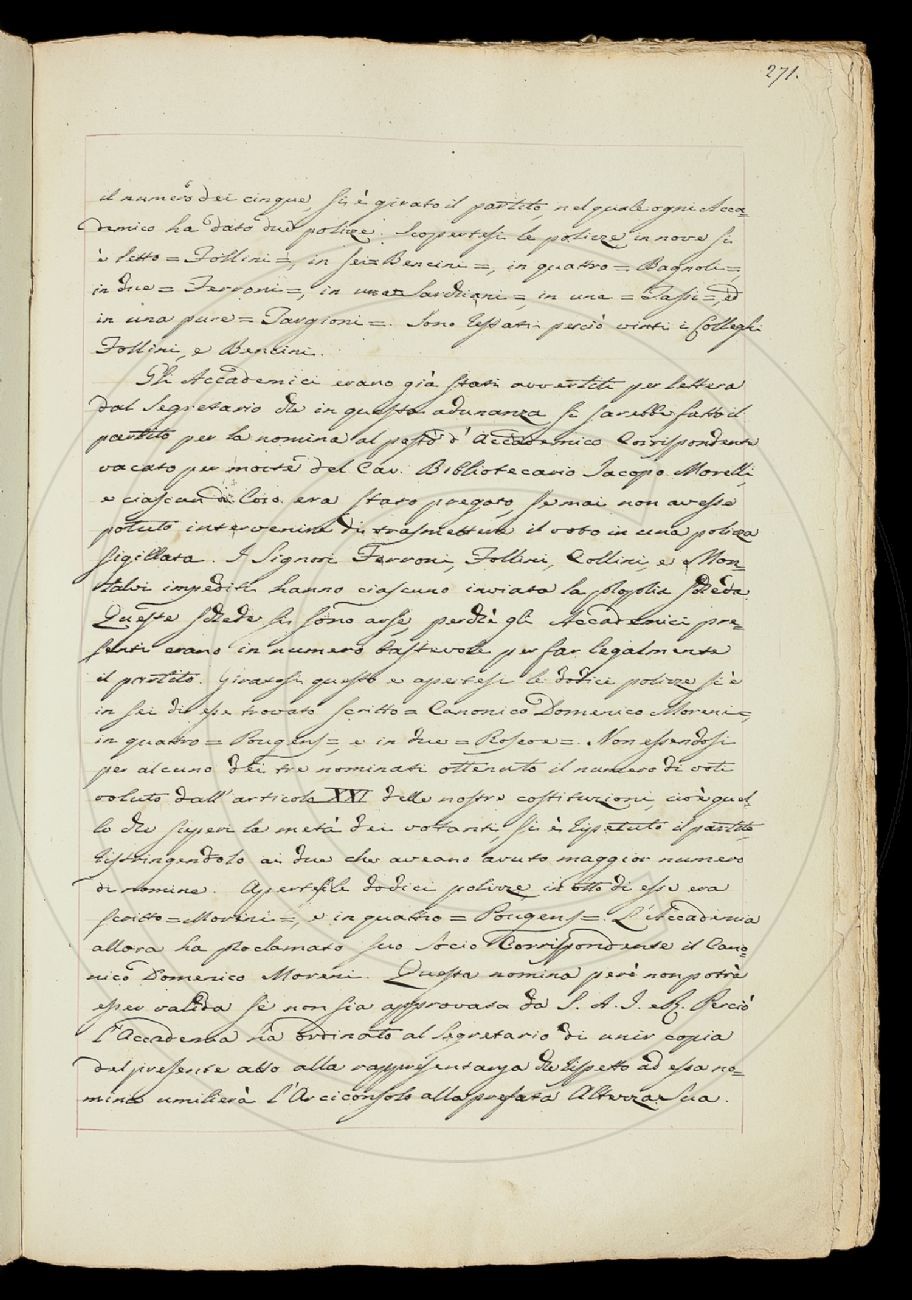 271.
il numero dei cinque, si è girato il partito, nel quale ogni Acca=
demico ha dato due polizze. Scopertesi le polizze, in nove si
è letto = Follini =, in sei = Bencini =, in quattro = Bagnoli =,
in due = Ferroni =, in una = Sarchiani =, in una = Tassi =, ed
in una pure = Targioni =. Sono restati perciò vinti i Colleghi
Follini, e Bencini.
Gli Accademici erano già stati avvertiti per lettera
dal Segretario che in questa adunanza si sarebbe fatto il
partito per la nomina al posto d'Accademico Corrispondente
vacato per morte del Cav. Bibliotecario Jacopo Morelli,
e ciascun di loro era stato pregato, se mai non avesse
potuto intervenire di trasmettere il voto in una polizza
sigillata. I Signori Ferroni, Follini, Collini, e Mon=
talvi impediti hanno ciascuno inviata la propria scheda.
Queste schede si sono arse, perchè gli Accademici pre=
senti erano in numero bastevole per far legalmente
il partito. Giratosi questo e apertesi le dodici polizze si è
in sei di esse trovato scritto = Canonico Domenico Moreni =,
in quattro = Pougens =, e in due = Roscoe =. Non essendosi
per alcuno dei tre nominati ottenuto il numero di voti
voluto dall'articolo XXI delle nostre costituzioni, cioè quel=
lo che superi la metà dei votanti si è ripetuto il partito,
ristringendolo ai due che aveano avuto maggior numero
di nomine. Apertesi le dodici polizze, in otto di esse era
scritto = Moreni =, e in quattro = Pougens =. L'Accademia
allora ha proclamato suo Socio Corrispondente il Cano=
nico Domenico Moreni. Questa nomina però non potrà
esser valida se non sia approvata da S. A. I. e R. Perciò
l'Accademia ha ordinato al Segretario di unir copia
del presente atto alla rappresentanza che rispetto ad essa no=
mina umilierà l'Arciconsolo alla prefata Altezza Sua.